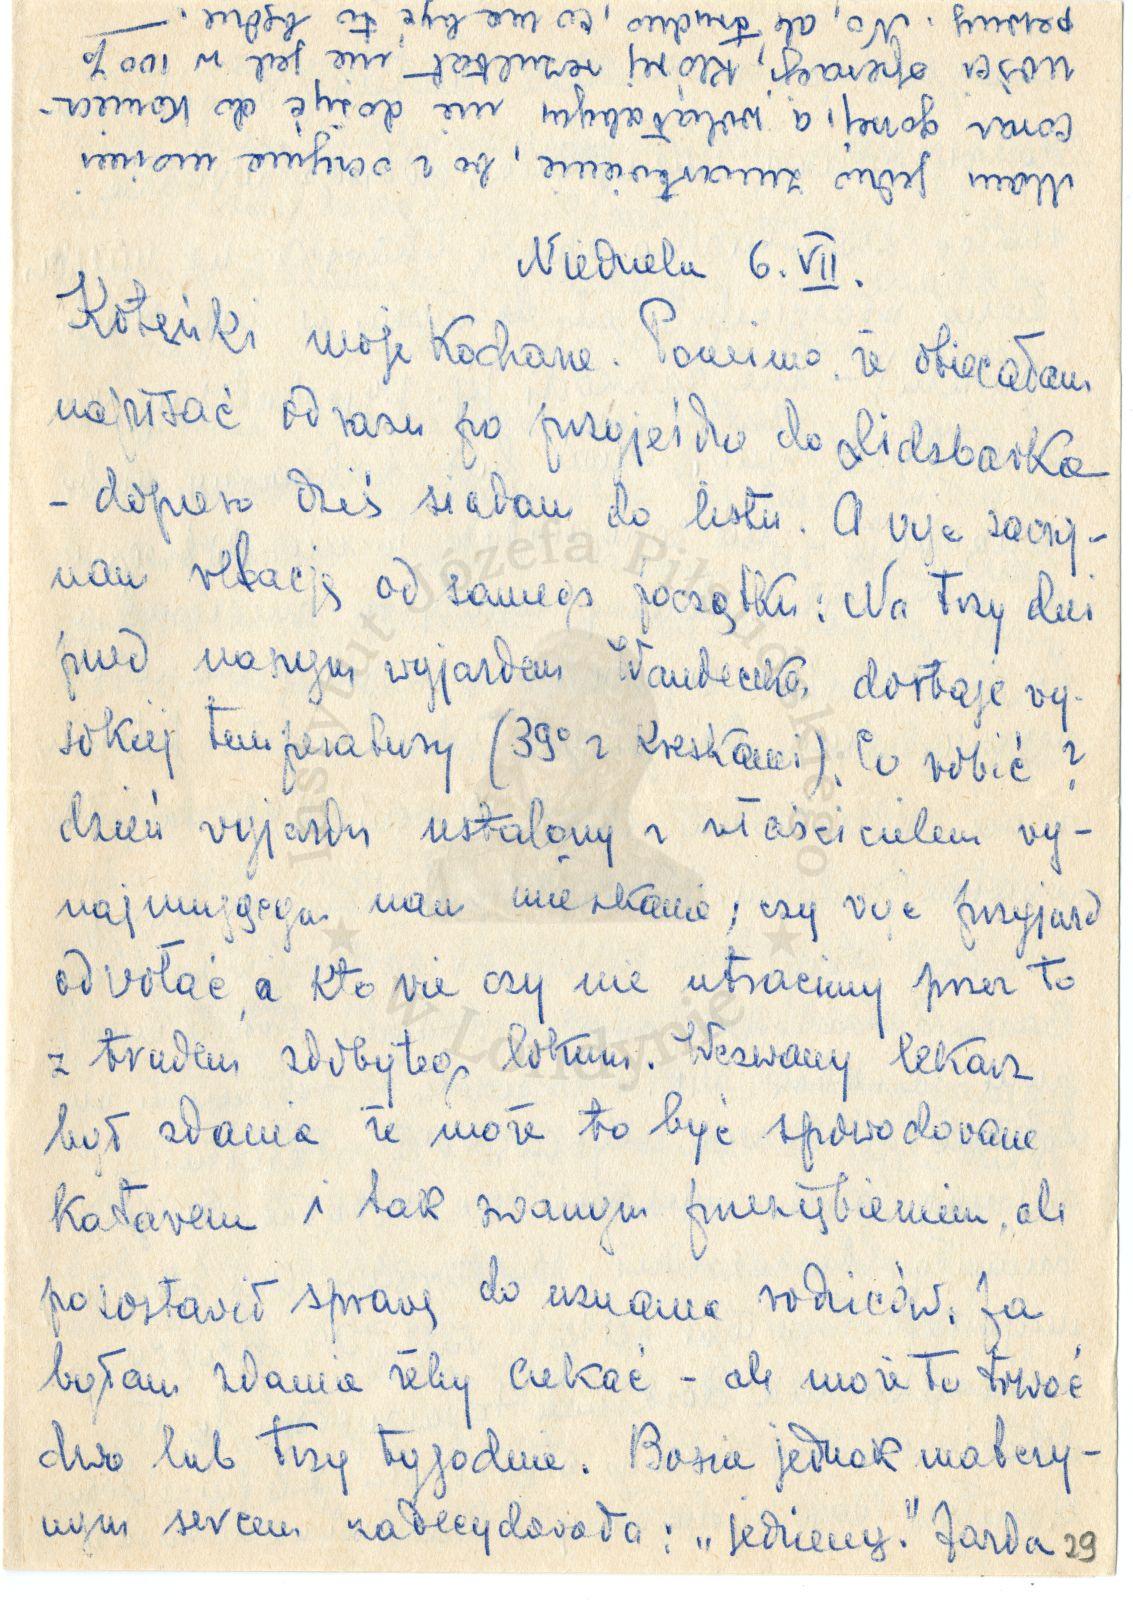 Mam jedno zmartwienie, bo z oczyma mojemi
coraz gorzej, a chciałabym nie dożyć do koniecz-
ności operacji, której rezultat nie jest w 100%
pewny. No, ale trudno, co ma być to będzie.
Niedziela 6. VII.
Koteńki moje Kochane. Pomimo, że obiecałam
napisać od razu po przyjeździe do Lidzbarka
- dopiero dziś siadam do listu. A więc zaczy-
nam relację od samego początku: Na trzy dni
przed naszym wyjazdem Wandeczka dostaje wy-
sokiej temperatury (39° z kreskami). Co robić?
dzień wyjazdu ustalony z właścicielem wy-
najmującym nam mieszkanie; czy więc przyjazd
odwołać, a kto wie czy nie utracimy przez to
z trudem zdobytego lokum. Wezwany lekarz
był zdania że może to być spowodowane
Katarem i tak zwanym przeziębieniem, ale
pozostawił sprawę do uznania rodziców. Ja
byłam zdania żeby czekać - ale może to trwać
dwa lub trzy tygodnie. Basia jednak matczy-
nym sercem zadecydowała: "jedziemy." Jazda
29
Instytut Józefa Piłsudskiego
w Londynie